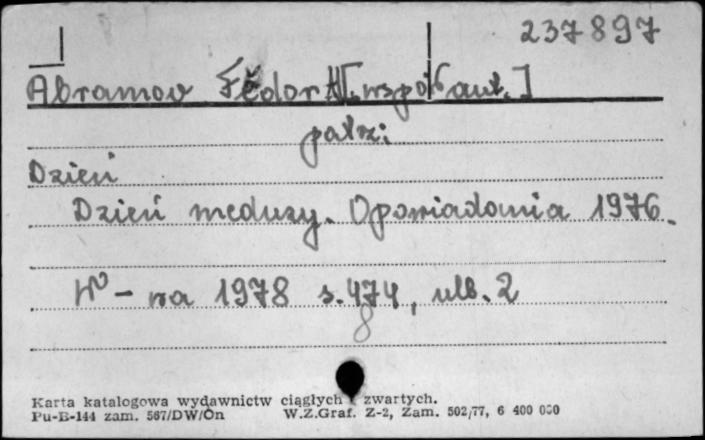 237897
Abramov Fëdor [współaut.]
patrz:
Dzień
Dzień meduzy. Opowiadania 1976.
W-wa 1978 s. 474, ulb. 2
8
Karta katalogowa wydawnictw ciągłych i zwartych.
Pu-B-144 zam. 567/DW/On W.Z.Graf. Z-2, Zam. 502/77, 6 400 000